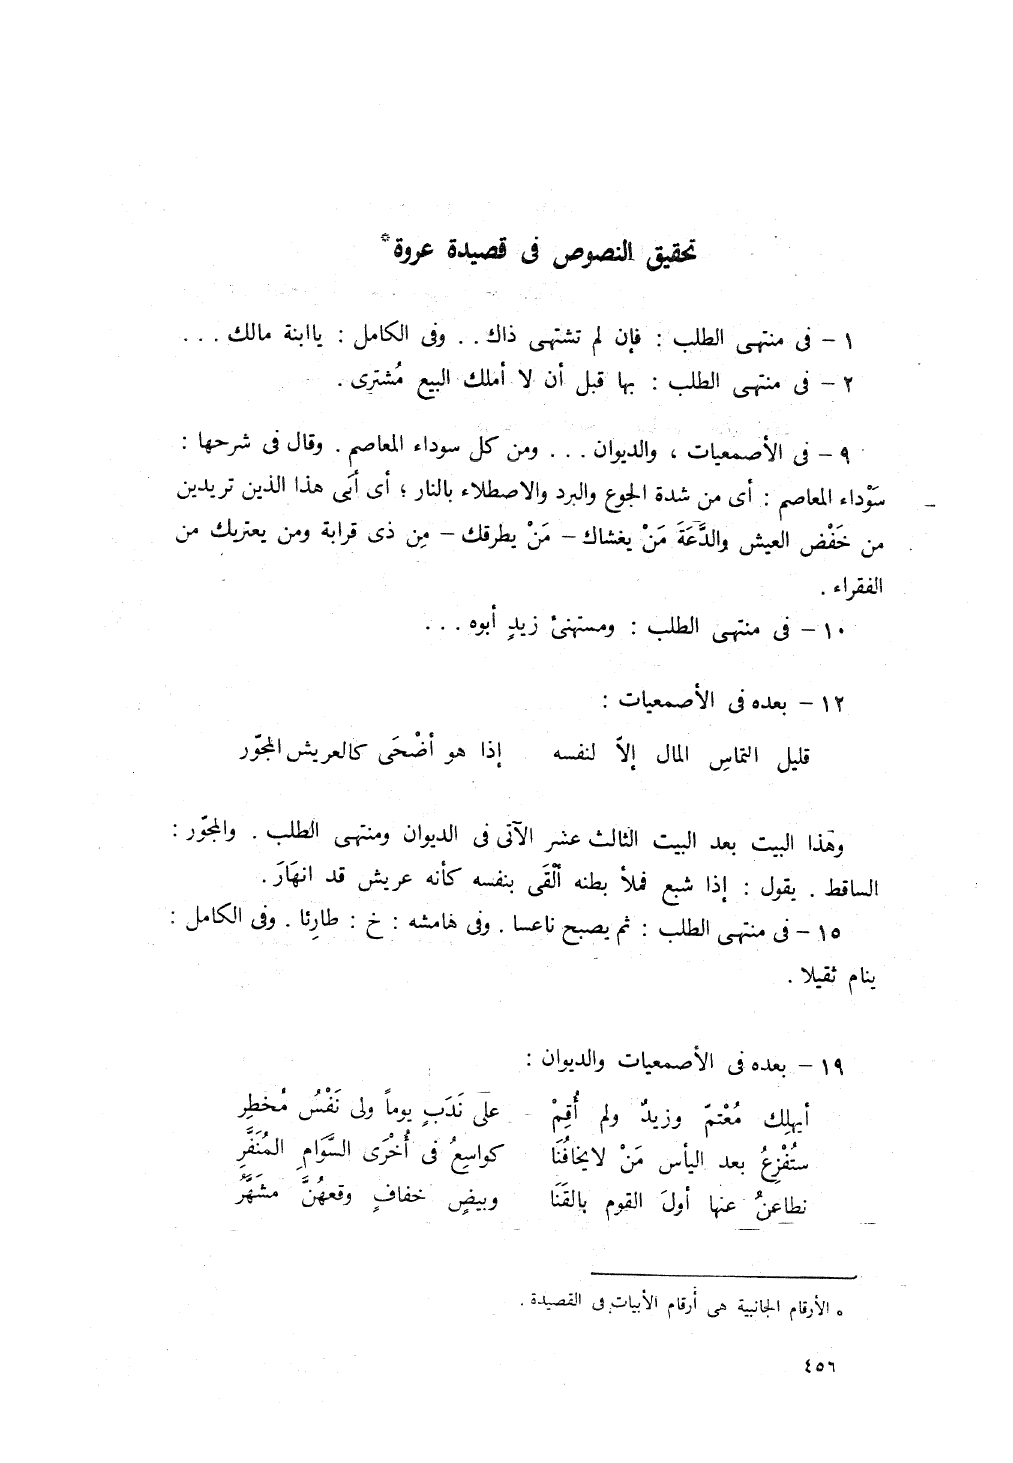 تحقيق النصوص فى قصيدة عروة*
١ – فى منتهى الطلب : فإن لم تشتهى ذاك . . وفى الكامل : يا ابنة مالك . . .
٢ – فى منتهى الطلب : بها قبل أن لا أملك البيع مُشترى .
٩ – فى الأصمعيات ، والديوان . . . ومن كل سوداء المعاصم . وقال فى شرحها :
سَوْداء المعاصم : أى من شدة الجوع والبرد والاصطلاء بالنار ؛ أى أبَى هذا الذين تريدين
من خَفْض العيش والدَّعَةَ مَنْ يغشاك – مَنْ يطرقك – مِن ذى قرابة ومن يعتريك من
الفقراء .
١٠ – فى منتهى الطلب : ومستهنئ زيدٍ أبوه . . .
١٢ – بعده فى الأصمعيات :
قليل التماسِ المال إلاّ لنفسه إذا هو أضْحَى كالعريش المجوّر
وهذا البيت بعد البيت الثالث عشر الآتى فى الديوان ومنتهى الطلب . والمجوّر :
الساقط . يقول : إذا شبع فملأ بطنه ألْقَى بنفسه كأنه عريش قد انهَارَ .
١٥ – فى منتهى الطلب : ثم يصبح ناعسا . وفى هامشه : خ : طارِئا . وفى الكامل :
ينام ثقيلا .
١٩ – بعده فى الأصمعيات والديوان :
أيهلِك مُعْتمّ وزيدٌ ولم أُقِمْ على نَدَبٍ يوماً ولى نَفْسُ مُخطِرِ
ستُفْزِعُ بعد اليأس مَنْ لا يخافُنَا كواسِعُ فى أُخْرَى السَّوَامِ المُنَفَّرِ
نطاعنُ عنها أولَ القوم بالقَنَا وبيضٍ خفافٍ وقعهُنَّ مشهَّرُ
* الأرقام الجانبية هى أرقام الأبيات فى القصيدة .
٤٥٦